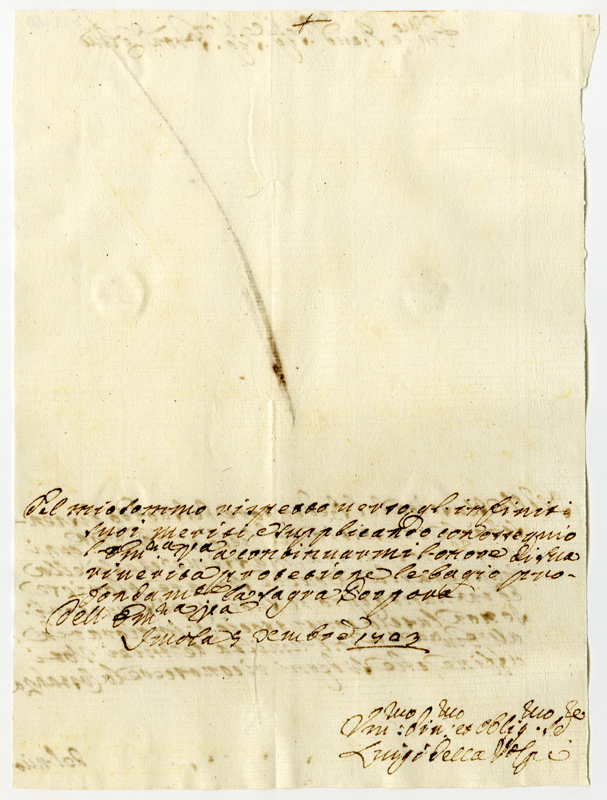 Del mio sommo rispetto verso gl'infiniti
suoi meriti, e supplicando con ossequio
l'Em:za V:ra a continuarmi l'onore di sua
riverita protezione le bacio pro-
fondam:te la sagra Porpora
Dell'Em:za V:ra
Imola 5 Xembre 1703
Um:mo Div:mo et oblig:mo Se:re
Luigi della Volpe